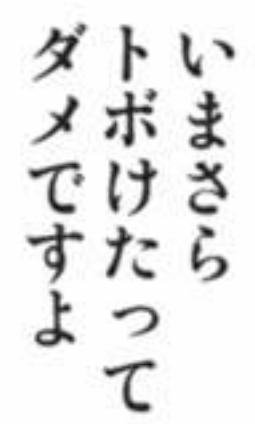 いまさら
トボけたって
ダメですよ